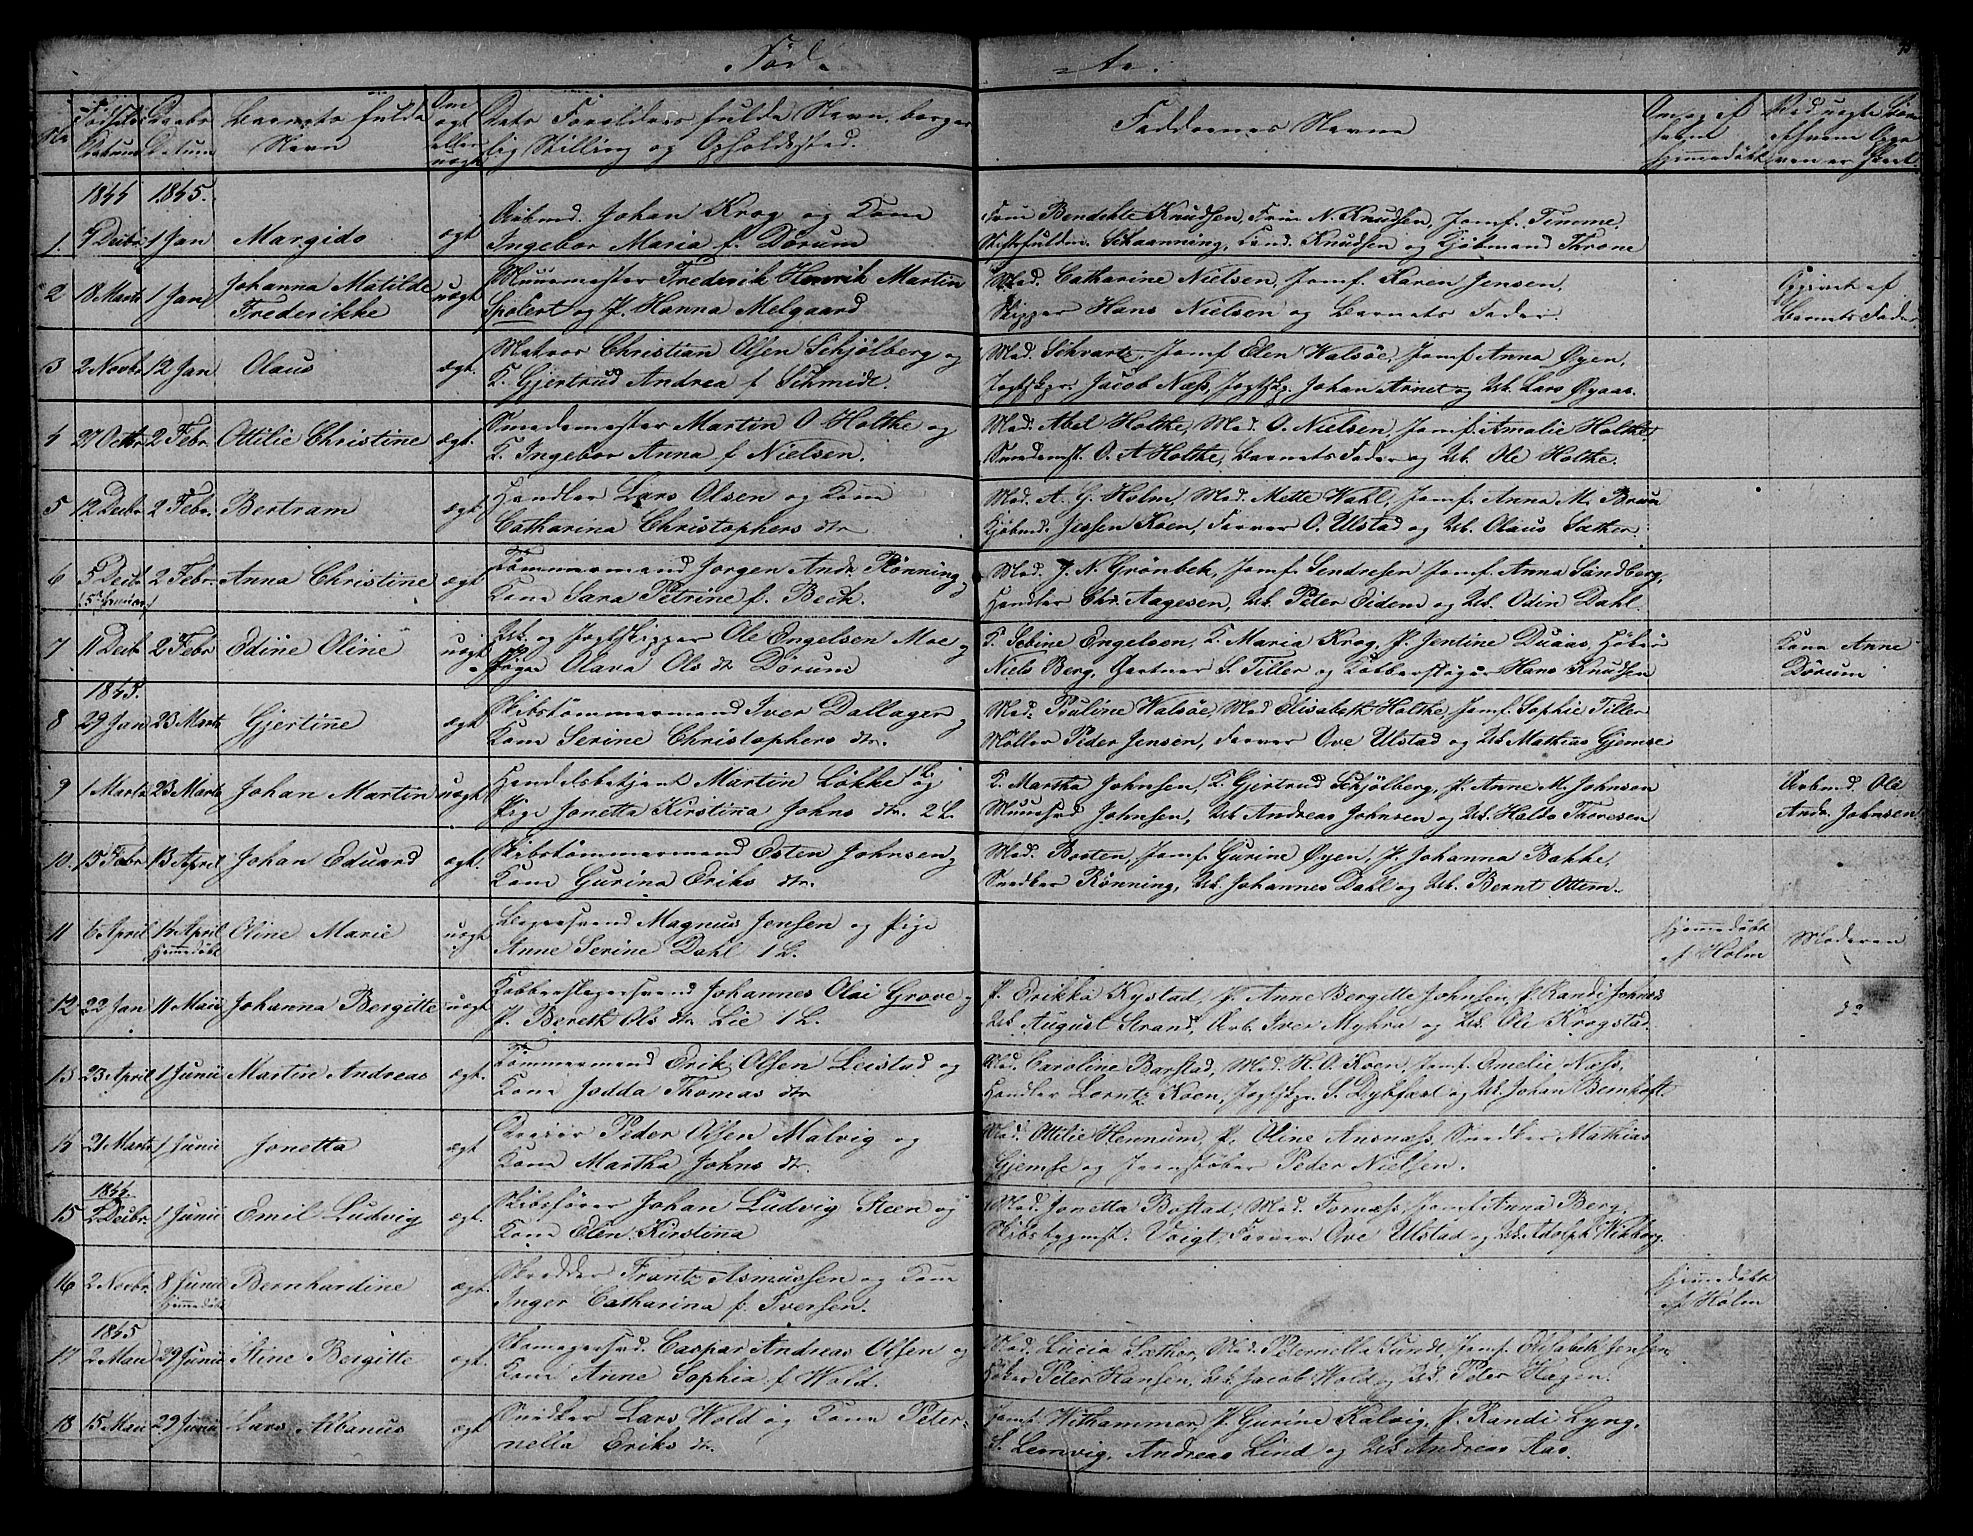 Fød- te.
No
Fødsels Datum
Daabs Datum
Barnets fulde Navn
Om ægt eller uægt
Dets Forældres fulde Navn, borgerlig Stilling og Opholdssted.
Faddernes Navne
Om og af hvem hjemmedøbt
1844 1845.
1 7 Decbr 1 Jan Margido ægt Arbmd. Johan Krog og Kone
Ingebor Maria f. Dörum
Frue Bendikte Knudsen, Frue N. Knudsen, Jomf. Timme,
Schaanning, Cand. Knudsen og Kjøbmand Throne
2 18 Marts 1 Jan Johanna Matilde uægt Muurmester Frederik Henrik Martin
Frederikke Spolert og P. Hanna Melgaard
Mad. Catharine Nielsen, Jomf. Karen Jensen,
Skipper Hans Nielsen og Barnets Fader.
Opgivet af
Barnets Fader
3 2 Novbr 12 Jan Olaus ægt. Matros Christian Olsen Schjölberg og
K. Gjertrud Andrea f Schmidt.
Mad. Schvartz, Jomf Elen Walsöe, Jomf Anna Øyen,
Jagtskpr. Jacob Næss, Jagtskp. Johan Arnet og Uk. Lars Øyaas.
4 27 Octbr 2 Febr. Ottilie Christine ægt. Smedemester Martin O Holtke og
K. Ingebor Anna f Nielsen.
Mad. Abel Holtke, Mad. O. Nielsen, Jomf. Amalie Holtke
Smedemst. O. A Holtke, Barnets Fader og Uk. Ole Holtke.
5 12 Decbr 2 Febr. Bertram ægt. Handler Lars Olsen og Kone
Catharina Christophers dtr
Mad. A. G. Holm, Mad. Mette Wahl, Jomf. Anna M. Bruun
Kjöbmd. Jessen Koen, Farver O. Ulstad og Uk. Olaus Sæther.
6 5 Decb. 2 Febr. Anna Christine ægt Tømmermand Jorgen Andr. Rönning
Kone Sara Petrine f. Bech.
Mad. J. N. Grönbek, Jomf. Sendresen Jomf. Anna Sandberg,
Handler Chr. Aagesen, Uk. Peter Eidem og Uk. Odin Dahl.
7 11 Decbr 2 Febr Edine Oline uægt Uk. og Jagtskipper Ole Engelsen Moe og
Pige Olava Ols dtr Dörum
K. Sebine Engelsen, K. Maria Krog, P. Jentine Duaas, Høker
Niels Berg, Gartner S. Tiller og Kobberslager Hans Knudsen
Kone Anne
Dörum
1845.
8 29 Jan 23 Marts Gjertine ægt Skibstømmermand Iver Dallager og
Kone Serine Christophers dtr.
Mad. Pauline Walsöe, Mad Elisabeth Holtke, Jomf. Sophie Tiller
Møller Peder Jensen, Farver Ove Ulstad og Uk Mathias Gjemse
9 1 Marts 23 Marts Johan Martin uægt Handelsbetjent Martin Løkke 1 L. og
Pige Jonetta Kirstina Johns dtr. 2 L.
K. Martha Johnsen, K. Gjertrud Schjölberg, P. Anne M. Johnsen
Muursvd Johnsen, Uk Andreas Johnsen og Uk. Haldo Thoresen
Arbmd. Ole
Andr. Johnsen
10. 15 Febr 13 April Johan Eduard ægt. Skibstømmermand Esten Johnsen og
Kone Gurina Eriks dtr.
Mad. Bosten, Jomf. Gurine Øyen, P. Johanna Bakke,
Snedker Rönning, Uk. Johannes Dahl og Uk. Bernt Ottem.
11 6 April 14 April Oline Marie uægt. Bagersvend Magnus Jensen og Pige
Hjemmedøbt Anne Serine Dahl 1 L.
Hjemmedøbt
af Holm
Moderen
12 22 Jan 11 Maii Johanna Bergitte uægt Kobberslagersvend Johannes Olai Grove og
P. Bereth Ols dtr. Lie 1 L.
P. Erikka Kystad, P. Anne Bergitte Johnsen, P. Randi Johnsd
Uk. August Strand, Arb. Iver Myhra og Uk. Ole Krogstad.
do
13 23 April 1 Junii Martin Andreas ægt. Tømmermand Erik Olsen Leistad og
Kone Jodda Thomas dtr
Mad. Caroline Barstad, Mad. H. O. Koen, Jomf. Emelie Næss,
Handler Lorntz Koen, Jagtskpr. S. Dybfast og Uk. Johan Bemhoft.
14 21 Marts 1 Junii Jonetta ægt Peder Olsen Malvig og
Kone Martha Johns dtr.
Mad. Ottilie Hennum, P. Oline Ansnæss, Snedker Mathias
Gjemse og Jernstøber Peder Nielsen.
1844.
15 2 Decbr. 1 Junii Emil Ludvig ægt. Skibsfører Johan Ludvig Steen og
Kone Elen Kirstina
Mad. Jonetta Bostad, Mad. Fornæss, Jomf. Anna Berg,
Skibsbygmst. Voigt, Farver Ove Ulstad og Uk. Adolph Wikborg.
16 2 Novbr. 8 Junii Bernhardine ægt. Skredder Frantz Asmussen og Kone
Hjemmedøbt Inger Catharina f. Iversen.
Hjemmedøbt
af Holm
1845
17 2 Maii 29 Junii Stine Bergitte ægt. Skomagersvd. Caspar Andreas Olsen og
Kone Anne Sophia f Wold.
Mad. Lucia Sæther, Mad. Peternella Lunde, Jomf. Elisabeth Jensen
Høker Peter Hansen, Uk. Jacob Wold og Uk. Peter Hagen.
18 15 Maii 29 Junii Lars Albanus ægt Snedker Lars Wold og Kone Peter-
nella Eriks dtr.
Jomf. Withammer, P. Gurine Kalvig, P. Randi Lyng,
S. Lemvig, Andreas Lind og Uk Andreas Aas.